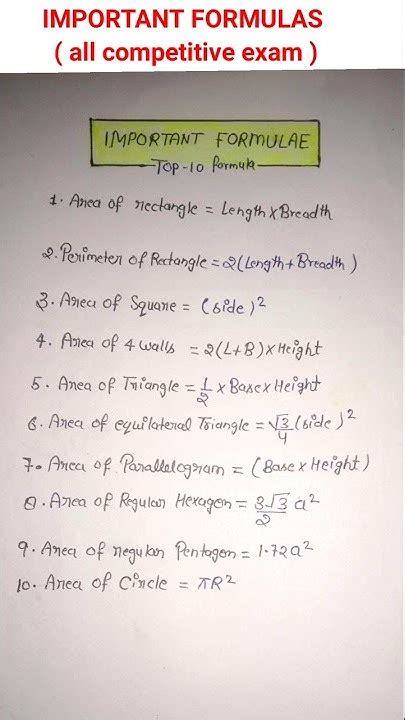 IMPORTANT FORMULAS
( all competitive exam )
IMPORTANT FORMULAE
TOP-10 formula
1. Area of rectangle = Length x Breadth
2. Perimeter of Rectangle = 2(Length + Breadth)
3. Area of Square = (side)²
4. Area of 4 walls = 2(L+B) x Height
5. Area of Triangle = 1/2 x Base x Height
6. Area of equilateral Triangle = √3/4 (side)²
7. Area of Parallelogram = (Base x Height)
8. Area of Regular Hexagon = 3√3/2 a²
9. Area of regular Pentagon = 1.72a²
10. Area of Circle = πR²